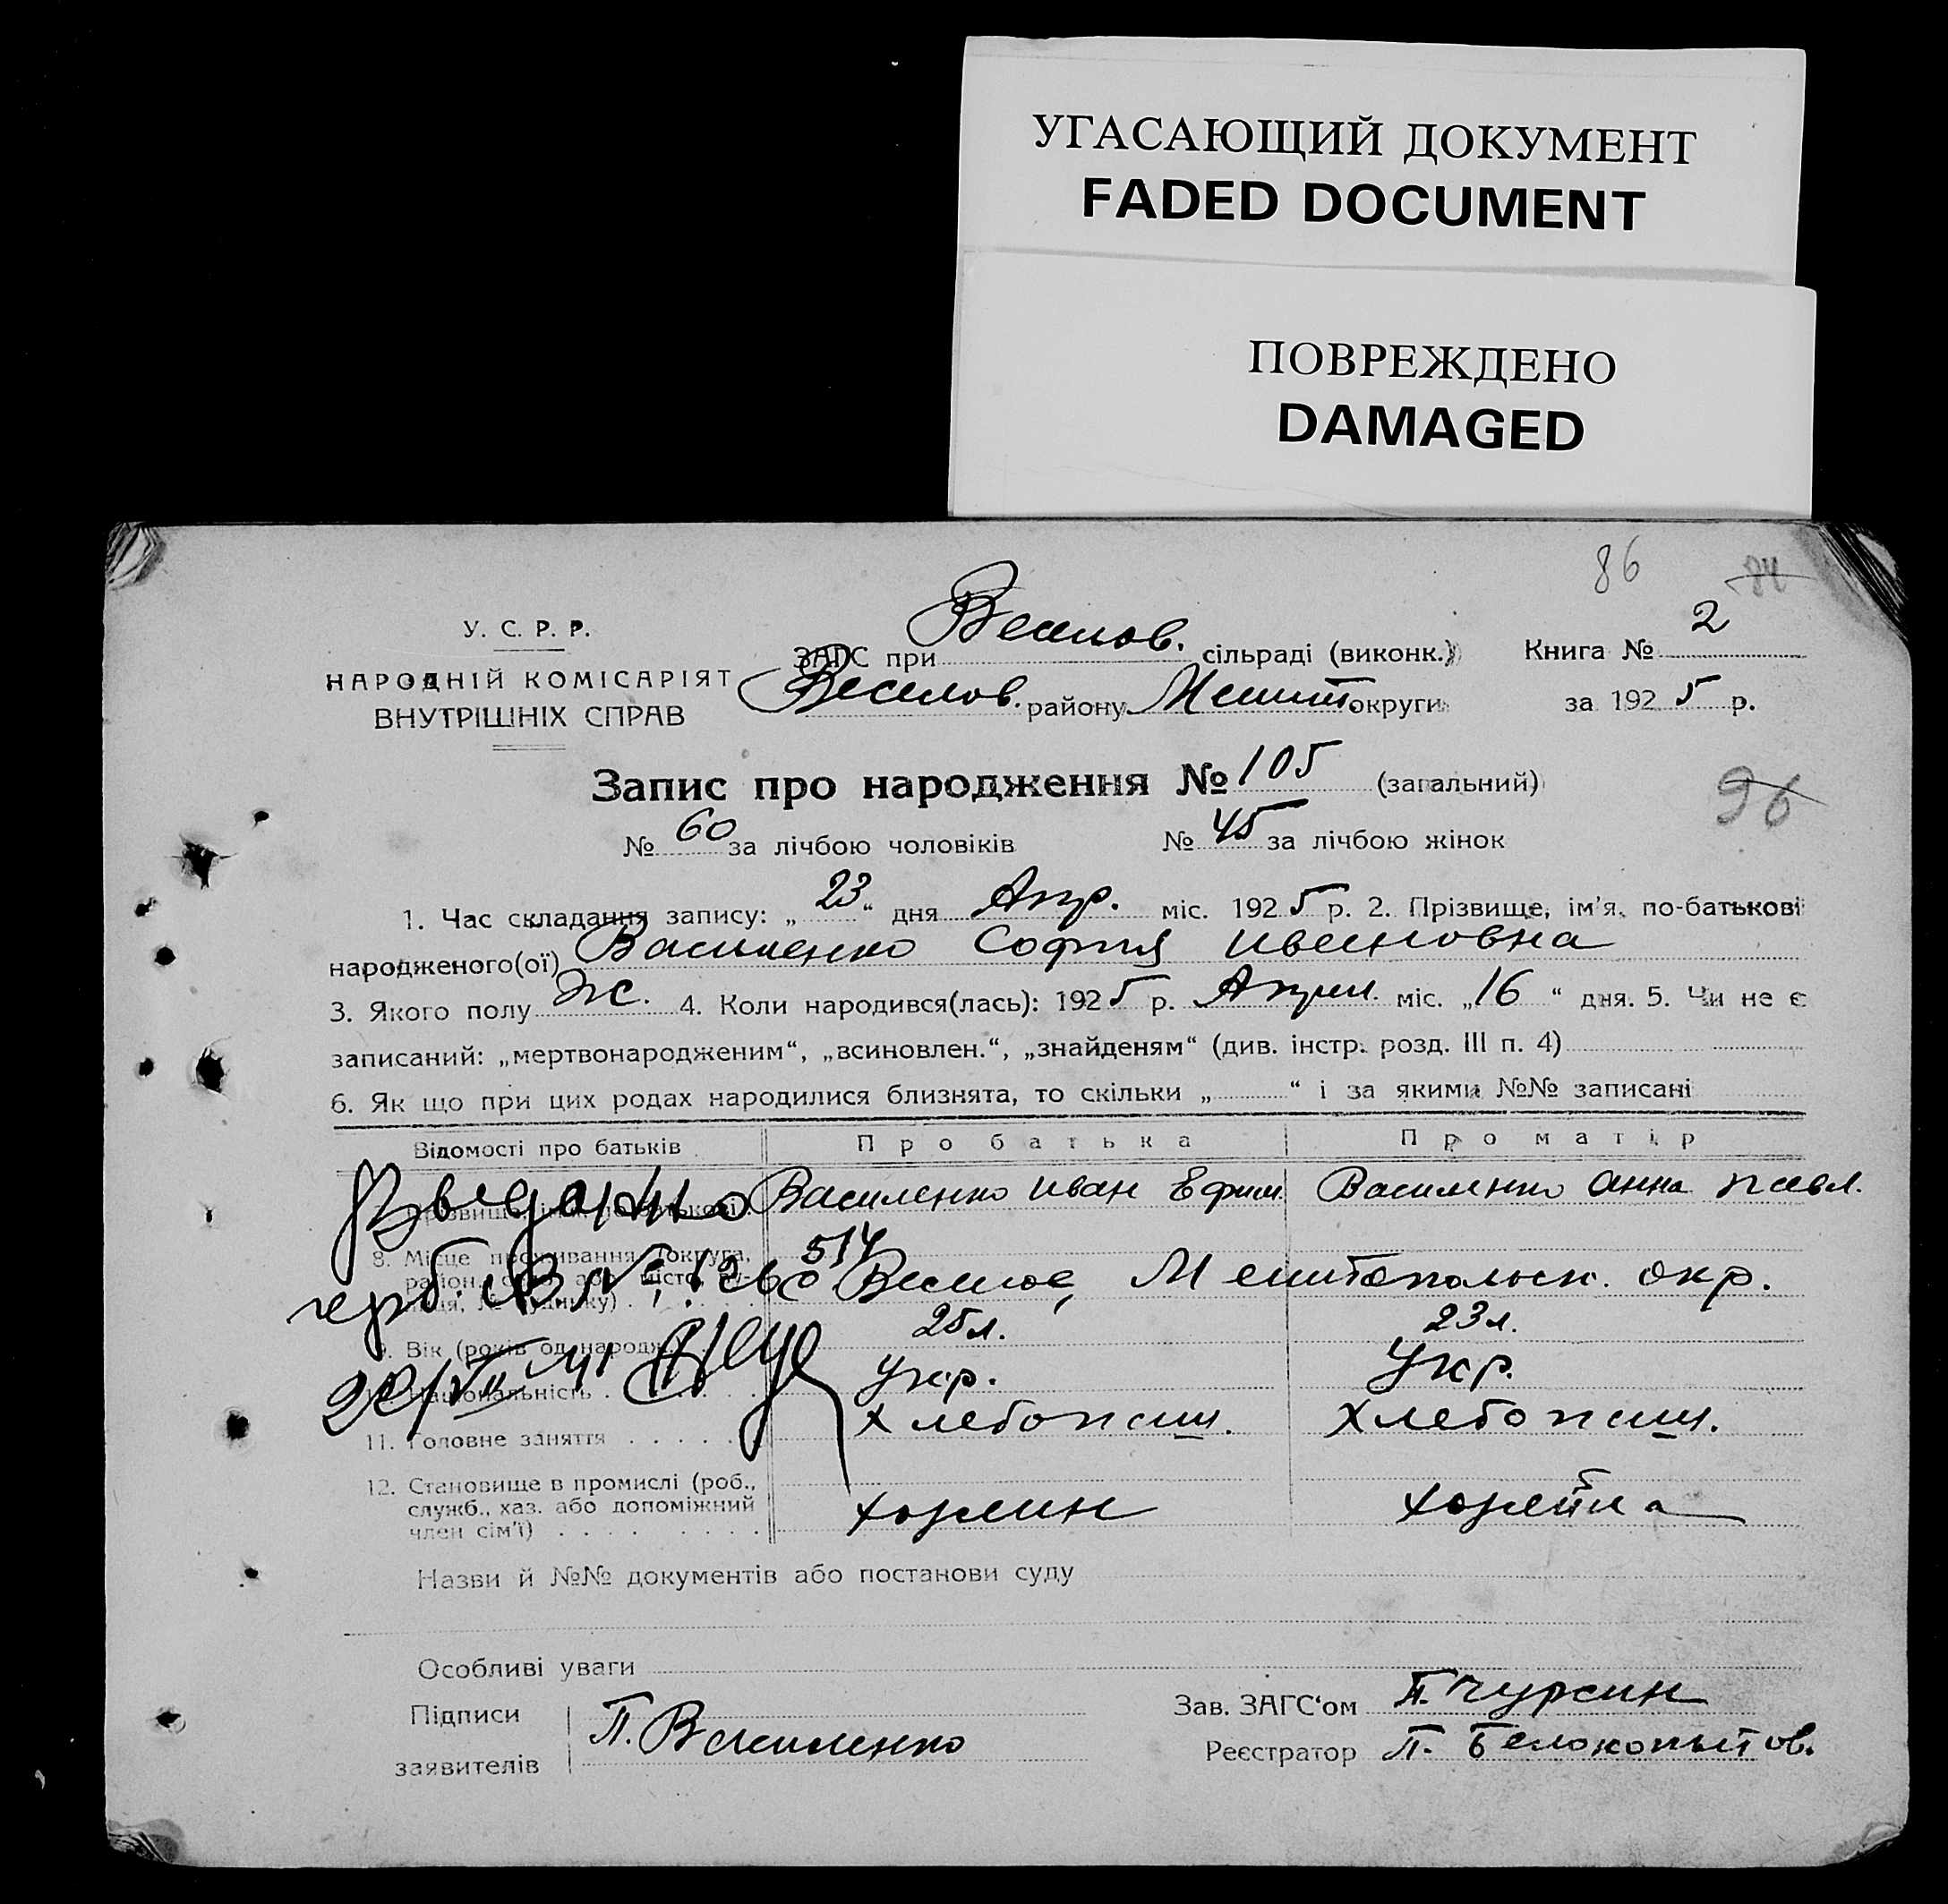 УГАСАЮЩИЙ ДОКУМЕНТ
FADED DOCUMENT
ПОВРЕЖДЕНО
DAMAGED
86 84
У. С. Р. Р.
НАРОДНІЙ КОМІСАРІЯТ
ВНУТРІШНІХ СПРАВ
ЗАГС при Веселов. сільраді (виконк.) Книга № 2
Веселов. району Мелит. округи за 1925 р.
Запис про народження № 105 (загальний)
96
№ 60 за лічбою чоловіків № 45 за лічбою жінок
1. Час складання запису: „23“ дня Апр. міс. 1925 р. 2. Прізвище, ім'я, по-батькові
народженого(ої) Василенко София Ивановна
3. Якого полу Ж. 4. Коли народився(лась): 1925 р. Апрел. міс. „16“ дня. 5. Чи не є
записаний: „мертвонародженим“, „всиновлен.“, „знайденям“ (див. інстр. розд. III п. 4)
6. Як що при цих родах народилися близнята, то скільки „ “ і за якими №№ записані
Відомості про батьків Про батька Про матір
Василенко Иван Ефим. Василенко Анна Павл.
8. Місце проживання (округа,
514
с Веселое, Мелитопольск. окр.
9. Вік (років од народж. 25 л. 23 л.
Національність Укр. Укр.
11. Головне заняття Хлебопаш. Хлебопаш.
12. Становище в промислі (роб.,
служб., хаз. або допоміжний
член сім'ї) хозяин хозяйка
Назви й №№ документів або постанови суду
Особливі уваги
Підписи
заявителів П. Василенко
Зав. ЗАГС'ом П. Чурсин
Реєстратор П. Белокопытов.